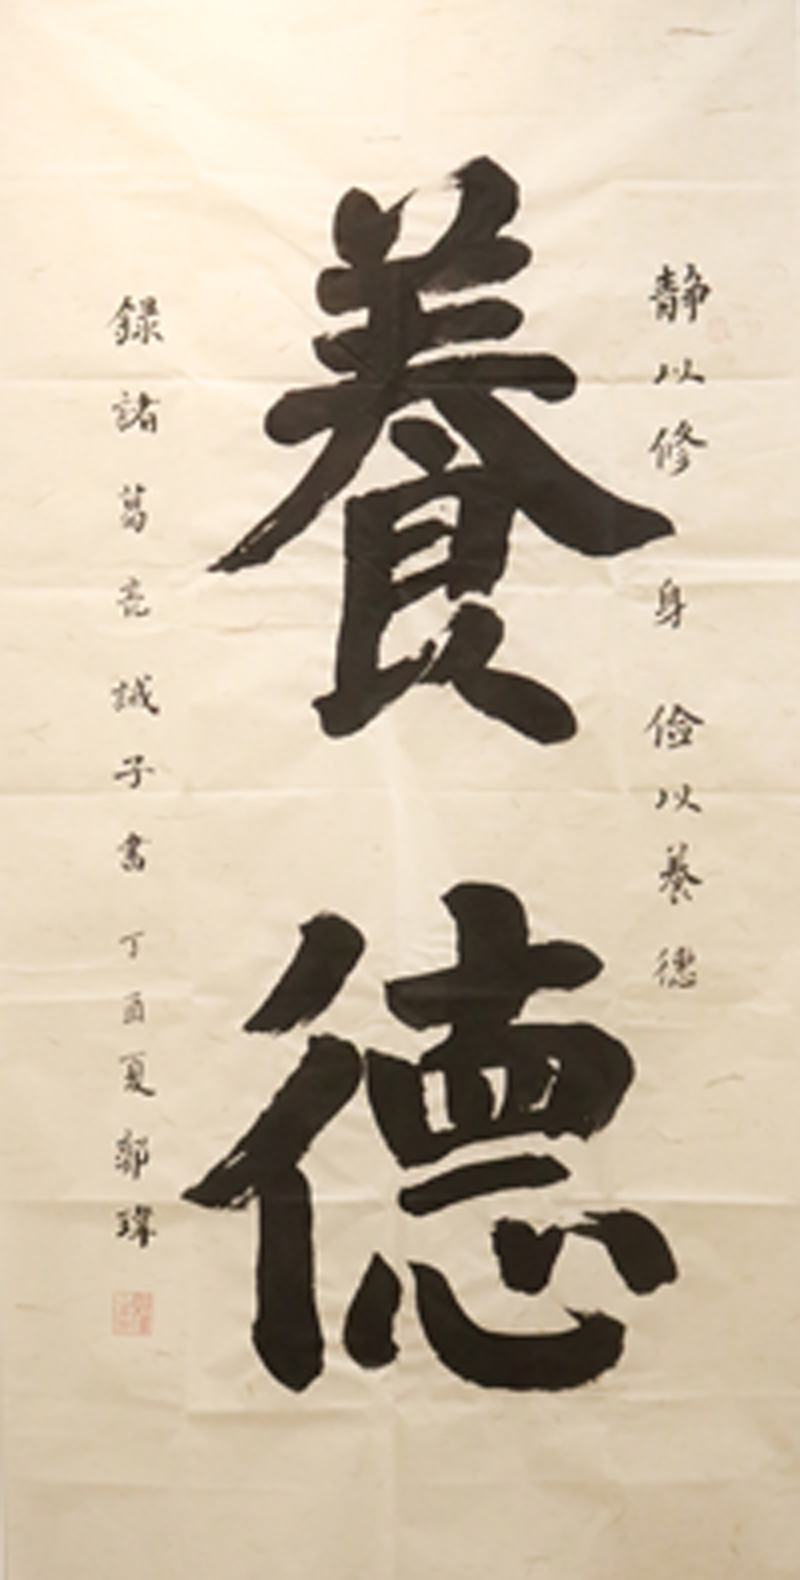 靜以修身儉以養德
養德
録諸葛亮誡子書丁酉夏郭瑋